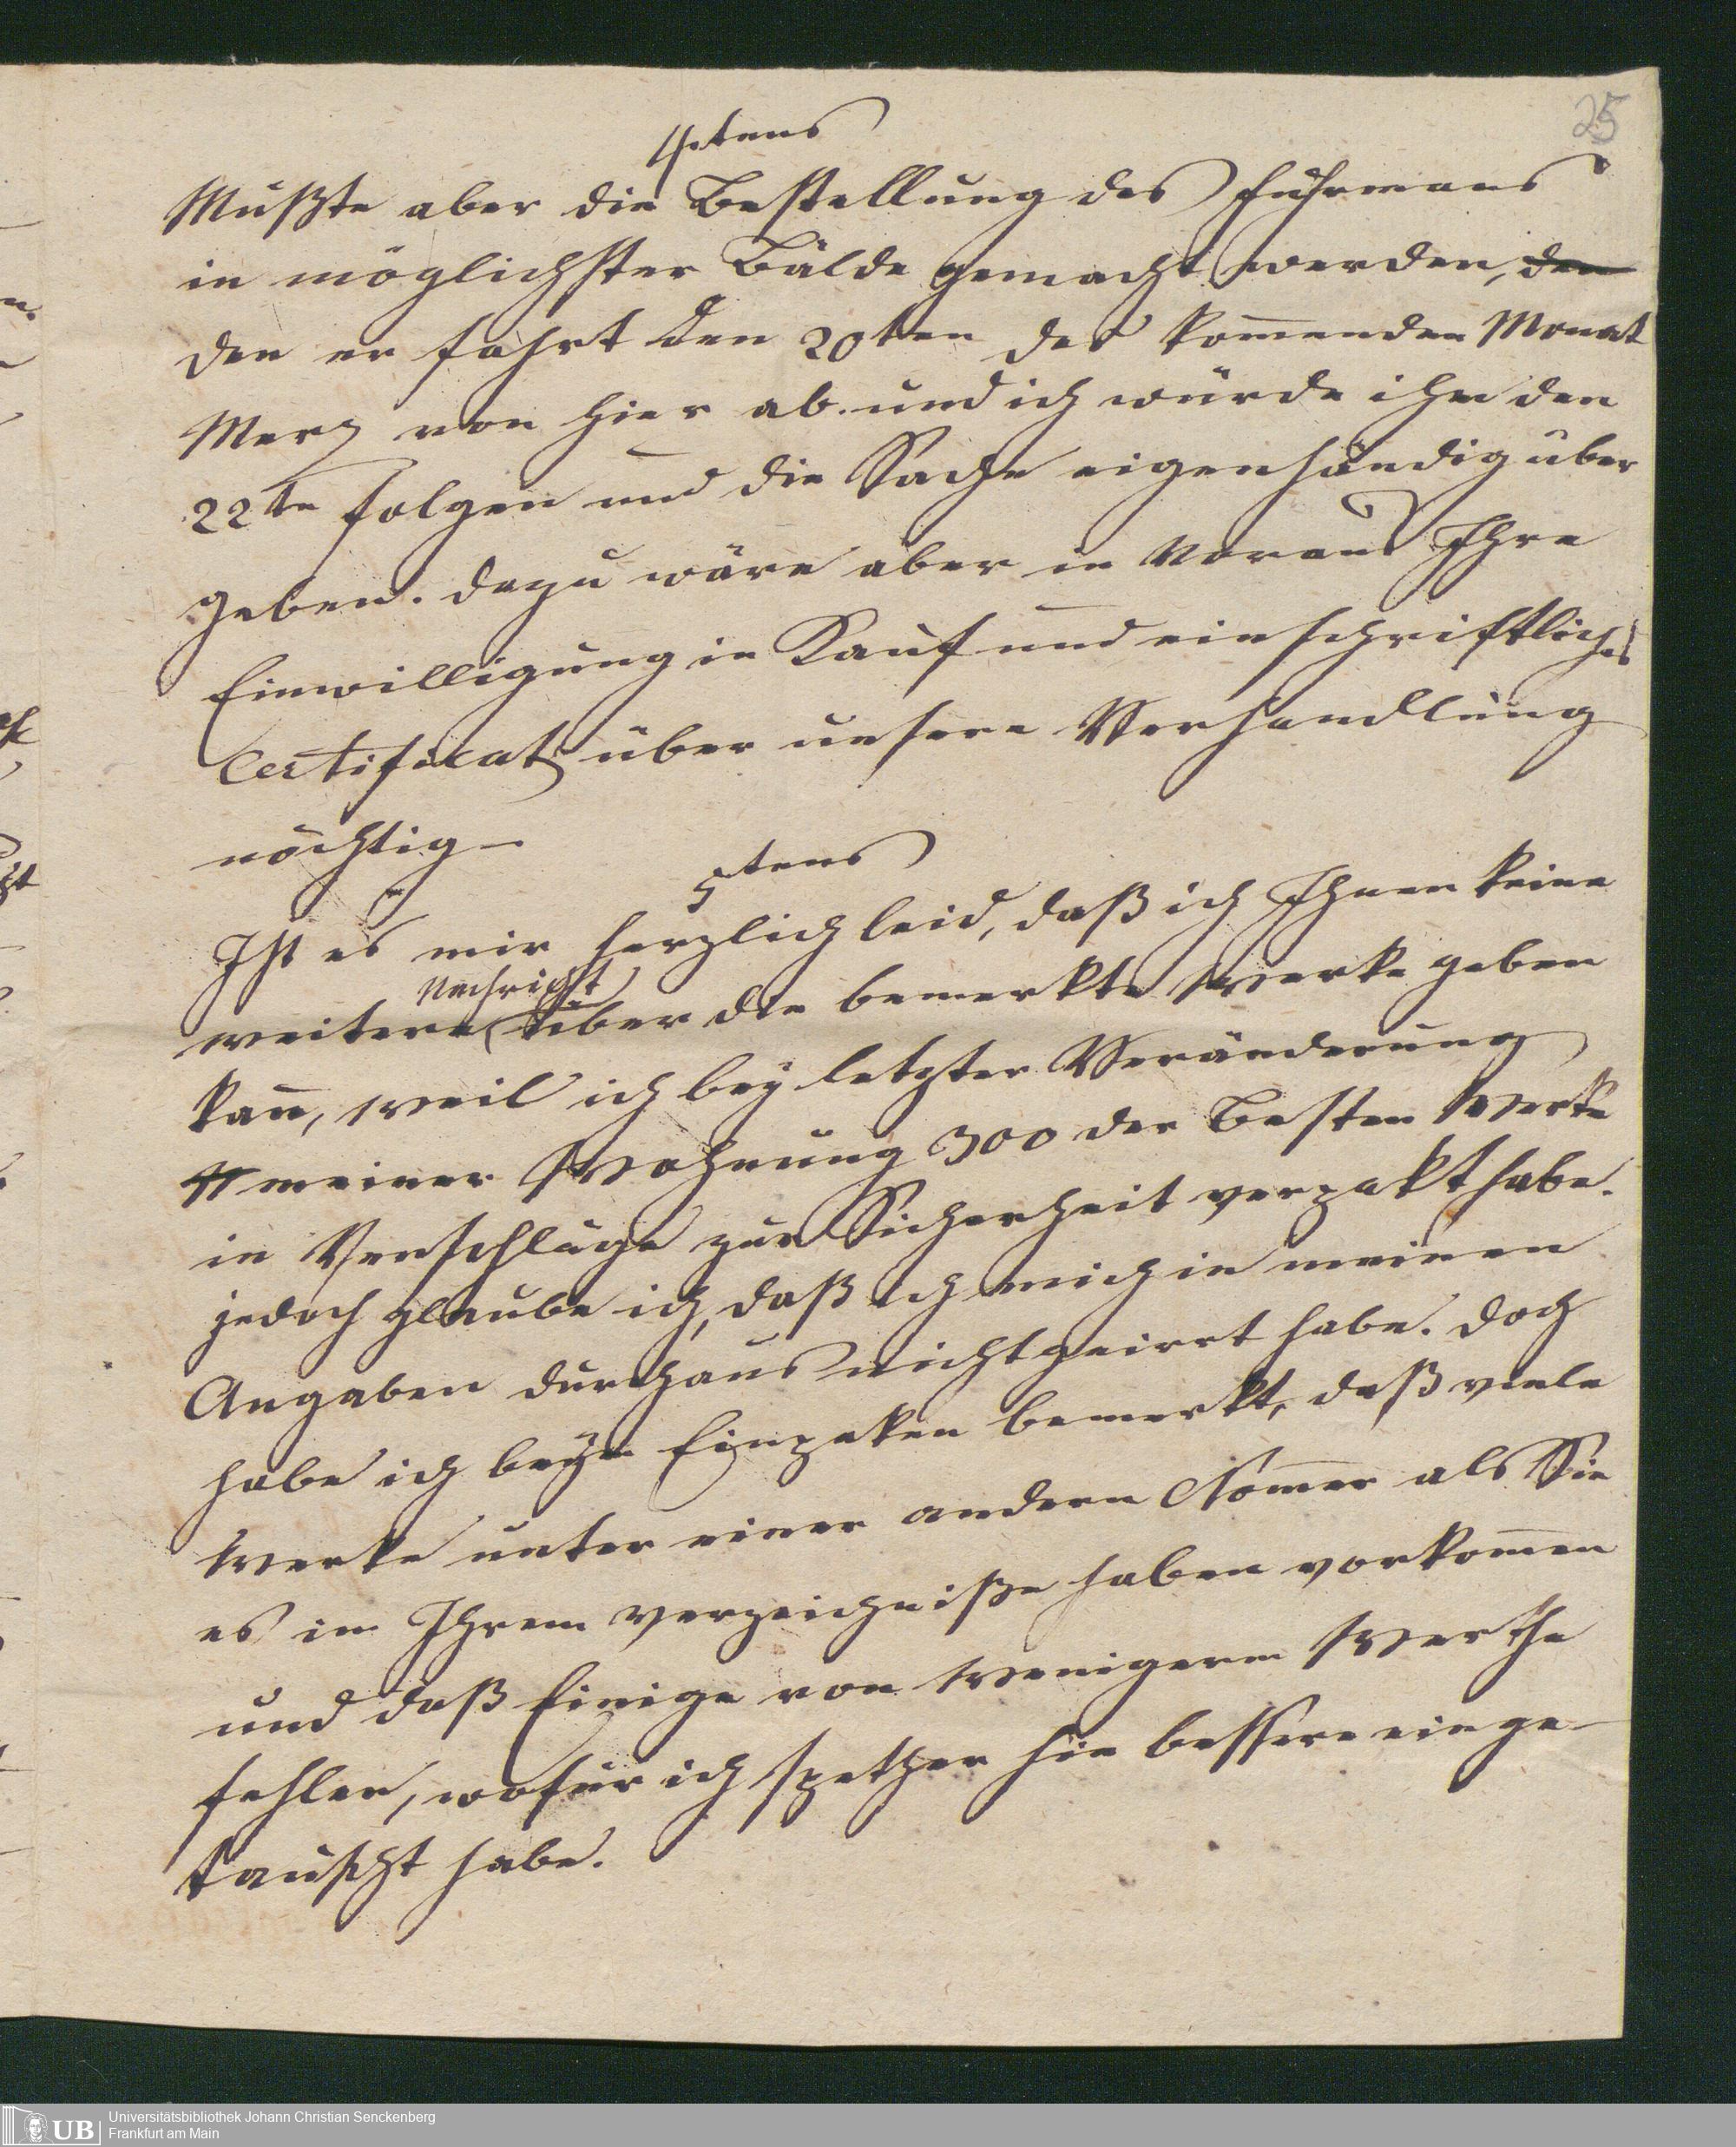 25
4tens
Mußte aber die Bestellung des Fuhrmans
in möglichster Bälde gemacht werden, den
den er fahrt den 20ten des kom̄enden Monat
Merz von hier ab. und ich würde ihm den
22te folgen und die Sache eigenhändig über
geben. dazu wäre aber in Voraus Ihre
Einwilligung in Kauf und ein schriftliches
Certificat über unsere Verhandlung
nöthig –
5tens
Ist es mir herzlich leid, daß ich Ihnen keine
Nachricht
weitere über die bemerkte Werke geben
kan̄, weil ich bey letzter Veränderung
meiner Wohnung 300 der Besten Werke
in Verschläge zur Sicherheit verpakt habe.
jedoch glaube ich, daß ich mich in meinen
Angaben durchaus nicht geirrt habe. doch
habe ich beym Einpaken bemerkt, daß viele
Werke unter einer andern Nom̄er als Sie
es in Ihrem verzeichniße haben vorkom̄en
und daß Einige von Wenigerm Werthe
fehlen, wofür ich spether hin bessere einge-
tauscht habe.
UB Universitätsbibliothek Johann Christian Senckenberg
Frankfurt am Main